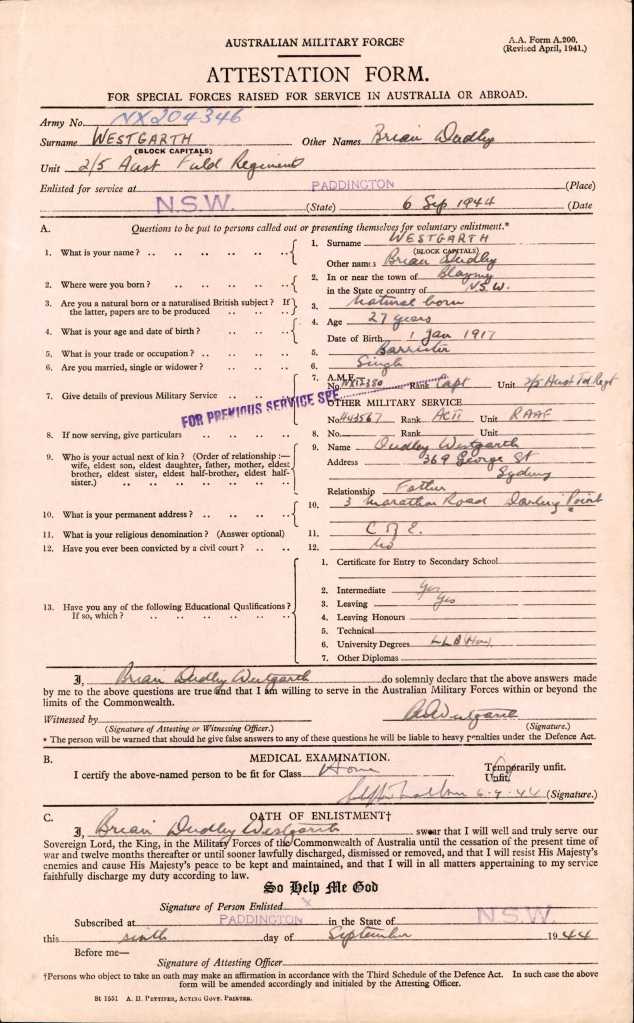 AUSTRALIAN MILITARY FORCES
A.A. Form A.200.
(Revised April, 1941.)
ATTESTATION FORM.
FOR SPECIAL FORCES RAISED FOR SERVICE IN AUSTRALIA OR ABROAD.
Army No. NX204346
Surname WESTGARTH Other Names Brian Dudley
(BLOCK CAPITALS)
Unit 2/5 Aust Field Regiment
Enlisted for service at PADDINGTON (Place)
N.S.W. (State) 6 Sep 1944 (Date
A. Questions to be put to persons called out or presenting themselves for voluntary enlistment.*
1. What is your name? .. .. .. .. .. 1. Surname WESTGARTH
(BLOCK CAPITALS)
Other names Brian Dudley
2. Where were you born? .. .. .. .. 2. In or near the town of Blayney
in the State or country of N.S.W.
3. Are you a natural born or a naturalised British subject? If the latter, papers are to be produced .. .. .. 3. Natural born
4. What is your age and date of birth? .. .. .. 4. Age 27 years
Date of Birth 1 Jan 1917
5. What is your trade or occupation? .. .. .. .. 5. Barrister
6. Are you married, single or widower? .. .. .. 6. Single
7. Give details of previous Military Service .. .. 7. A.M.F.
No. NX12380 Rank Capt Unit 2/5 Aust Fd Regt
FOR PREVIOUS SERVICE SEE
OTHER MILITARY SERVICE
No. 443567 Rank ACII Unit RAAF
8. If now serving, give particulars .. .. .. .. 8. No. Rank Unit
9. Who is your actual next of kin? (Order of relationship:— wife, eldest son, eldest daughter, father, mother, eldest brother, eldest sister, eldest half-brother, eldest half-sister.) .. .. .. .. .. .. 9. Name Dudley Westgarth
Address 369 George St
Sydney
Relationship Father
10. What is your permanent address? .. .. .. .. 10. 3 Marathon Road Darling Point
11. What is your religious denomination? (Answer optional) 11. C of E.
12. Have you ever been convicted by a civil court? .. .. 12. No
13. Have you any of the following Educational Qualifications? If so, which? .. .. .. .. .. ..
1. Certificate for Entry to Secondary School
2. Intermediate Yes
3. Leaving Yes
4. Leaving Honours
5. Technical
6. University Degrees LLB (Hons)
7. Other Diplomas
I, Brian Dudley Westgarth do solemnly declare that the above answers made
by me to the above questions are true and that I am willing to serve in the Australian Military Forces within or beyond the
limits of the Commonwealth.
Witnessed by BDWestgarth
(Signature of Attesting or Witnessing Officer.) (Signature.)
* The person will be warned that should he give false answers to any of these questions he will be liable to heavy penalties under the Defence Act.
B. MEDICAL EXAMINATION.
I certify the above-named person to be fit for Class Temporarily unfit.
Unfit.
6-9-44 (Signature.)
C. OATH OF ENLISTMENT†
I, Brian Dudley Westgarth swear that I will well and truly serve our
Sovereign Lord, the King, in the Military Forces of the Commonwealth of Australia until the cessation of the present time of
war and twelve months thereafter or until sooner lawfully discharged, dismissed or removed, and that I will resist His Majesty's
enemies and cause His Majesty's peace to be kept and maintained, and that I will in all matters appertaining to my service
faithfully discharge my duty according to law.
So Help Me God
Signature of Person Enlisted x
Subscribed at PADDINGTON in the State of N.S.W.
this sixth day of September 1944
Before me—
Signature of Attesting Officer
†Persons who object to take an oath may make an affirmation in accordance with the Third Schedule of the Defence Act. In such case the above
form will be amended accordingly and initialed by the Attesting Officer.
St 1551 A. H. PETTIFER, ACTING GOVT. PRINTER.